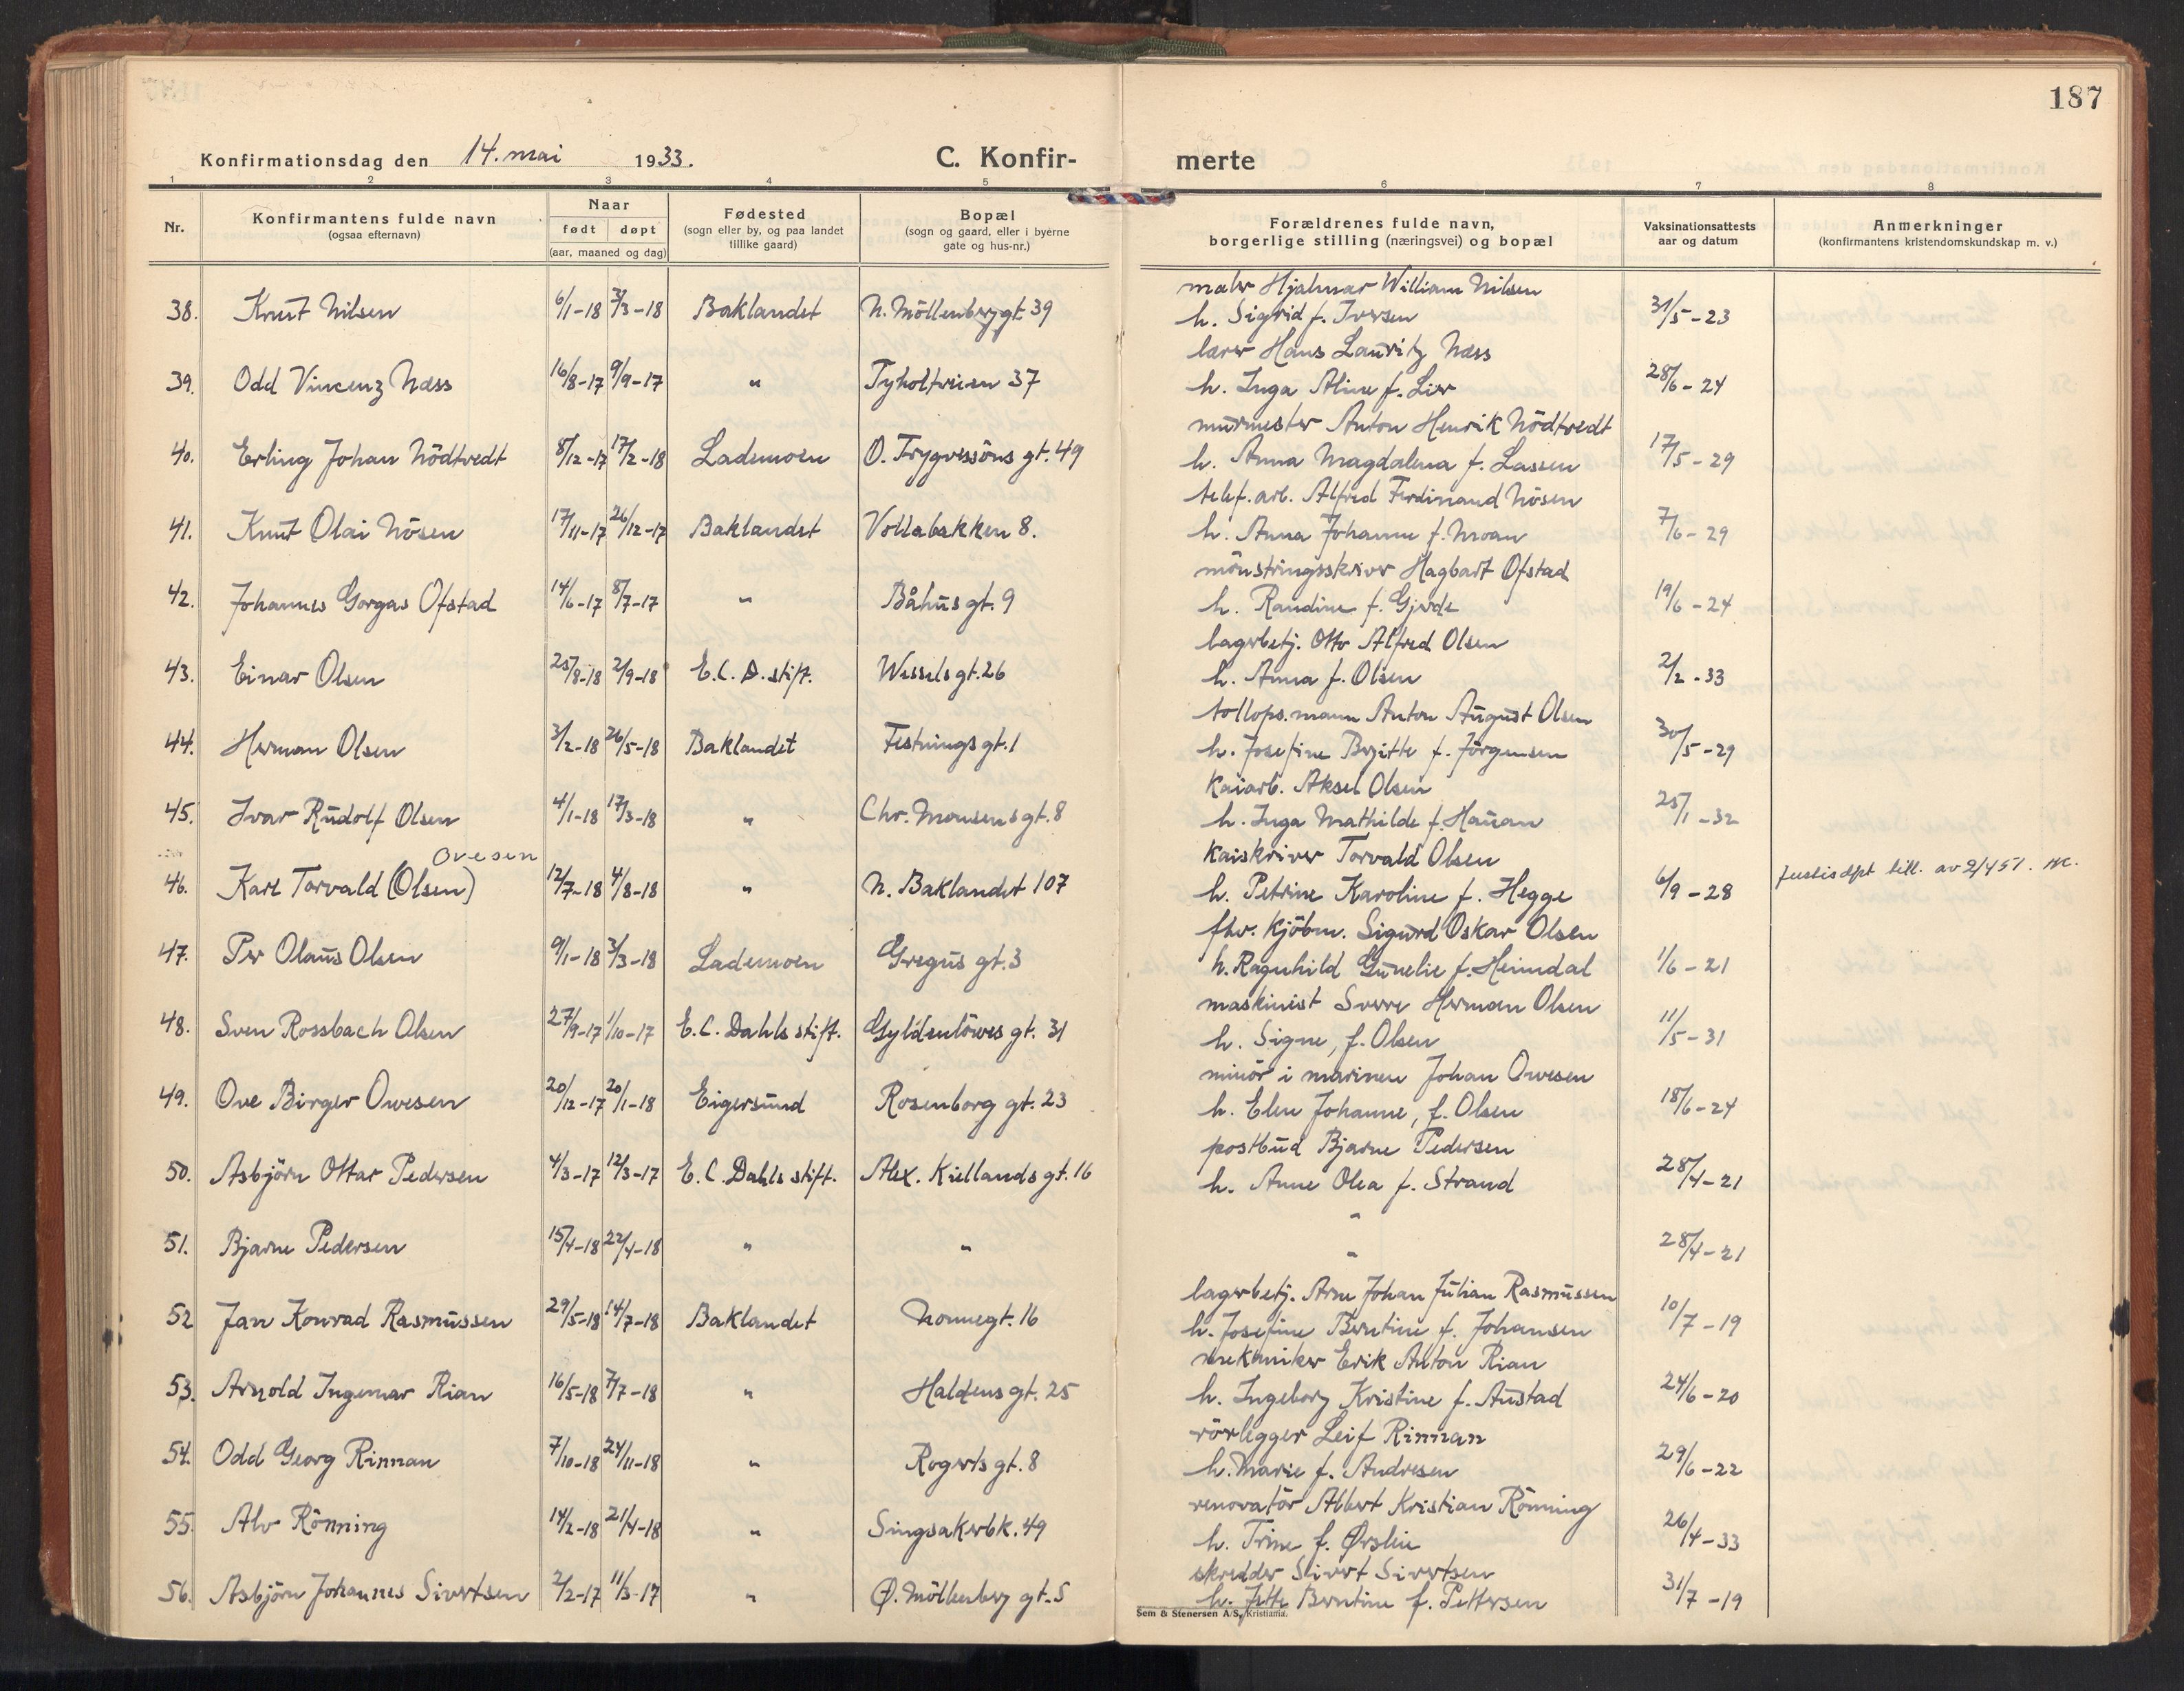 187
Konfirmationsdag den 14. mai 1933. C. Konfir- merte
1 2 3 4 5 6 7 8
Nr. Konfirmantens fulde navn (ogsaa efternavn) Naar født døpt (aar, maaned og dag) Fødested (sogn eller by, og paa landet tillike gaard) Bopæl (sogn og gaard, eller i byerne gate og hus-nr.) Forældrenes fulde navn, borgerlige stilling (næringsvei) og bopæl Vaksinationsattests aar og datum Anmerkninger (konfirmantens kristendomskundskap m. v.)
maler Hjalmar William Nilsen
38. Knut Nilsen 6/1-18 3/3-18 Baklandet N. Möllenberggt. 39 h. Sigrid f. Iversen 31/5-23
lærer Hans Lauritz Næss
39. Odd Vincenz Næss 16/8-17 9/9-17 " Tyholtveien 37 h. Inga Aline f. Lier 28/6-24
murmester Anton Henrik Nödtvedt
40. Erling Johan Nödtvedt 8/12-17 17/2-18 Lademoen O. Trygvessöns gt. 49 h. Anna Magdalena f. Lassen 17/5-29
telef. arb. Alfred Ferdinand Nösen
41. Knut Olai Nösen 17/11-17 26/12-17 Baklandet Vollabakken 8. h. Anna Johanne f. Moan 7/6-29
mönstringsskriver Hagbart Ofstad
42. Johannes Gorgas Ofstad 14/6-17 8/7-17 " Båhus gt. 9 h. Randine f. Gjerde 19/6-24
lagerbetj. Otto Alfred Olsen
43. Einar Olsen 25/8-18 2/9-18 E.C.D. stift. Wessels gt. 26 h. Anna f. Olsen 2/2-33
tollops.mann Anton August Olsen
44. Herman Olsen 3/2-18 26/5-18 Baklandet Festnings gt. 1 h. Josefine Bergitte f. Jörgensen 30/5-29
Kaiarb. Aksel Olsen
45. Ivar Rudolf Olsen 4/1-18 17/3-18 " Chr. Monsens gt. 8 h. Inga Mathilde f. Hauan 25/1-32
Ovesen Kaiskriver Torvald Olsen
46. Karl Torvald (Olsen) 12/7-18 4/8-18 " N. Baklandet 107 h. Petrine Karoline f. Hegge 6/9-28 Justisdpt bill. av 2/4 51.
fhv. Kjöbm. Sigurd Oskar Olsen
47. Per Olaus Olsen 9/1-18 3/3-18 Lademoen Gregus gt. 3 h. Ragnhild Gunelie f. Heimdal 1/6-21
maskinist Sverre Herman Olsen
48. Sven Rossbach Olsen 27/9-17 1/10-17 E.C. Dahls stift. Gyldenlöves gt. 31 h. Signe, f. Olsen 11/5-31
minör i marinen Johan Owesen
49. Ove Birger Owesen 20/12-17 20/1-18 Eigersund Rosenborg gt. 23 h. Elen Johanne, f. Olsen 18/6-24
postbud Bjarne Pedersen
50. Asbjörn Ottar Pedersen 4/3-17 12/3-17 E.C. Dahls stift. Alex. Kiellands gt. 16 h. Anne Olea f. Strand 28/4-21
"
51. Bjarne Pedersen 15/4-18 22/4-18 " " " 28/4-21
lagerbetj. Arne Johan Julian Rasmussen
52 Jan Konrad Rasmussen 29/5-18 14/7-18 Baklandet Nonnegt. 16 h. Josefine Berntine f. Johansen 10/7-19
mekaniker Erik Anton Rian
53. Arnold Ingemar Rian 16/5-18 7/7-18 " Haldens gt. 25 h. Ingeborg Kristine f. Austad 24/6-20
rörlegger Leif Rinnan
54. Odd Georg Rinnan 7/10-18 24/11-18 " Rogerts gt. 8 h. Marie f. Andresen 29/6-22
renovatör Albert Kristian Rönning
55. Alv Rönning 14/2-18 21/4-18 " Singsakerbk. 49 h. Trine f. Ørslien 26/4-33
skredder Sivert Sivertsen
56. Asbjörn Johannes Sivertsen 2/2-17 11/3-17 " Ø. Möllenberg gt. 5 h. Jette Berntine f. Pettersen 31/7-19
Sem & Stenersen A/S, Kristiania.